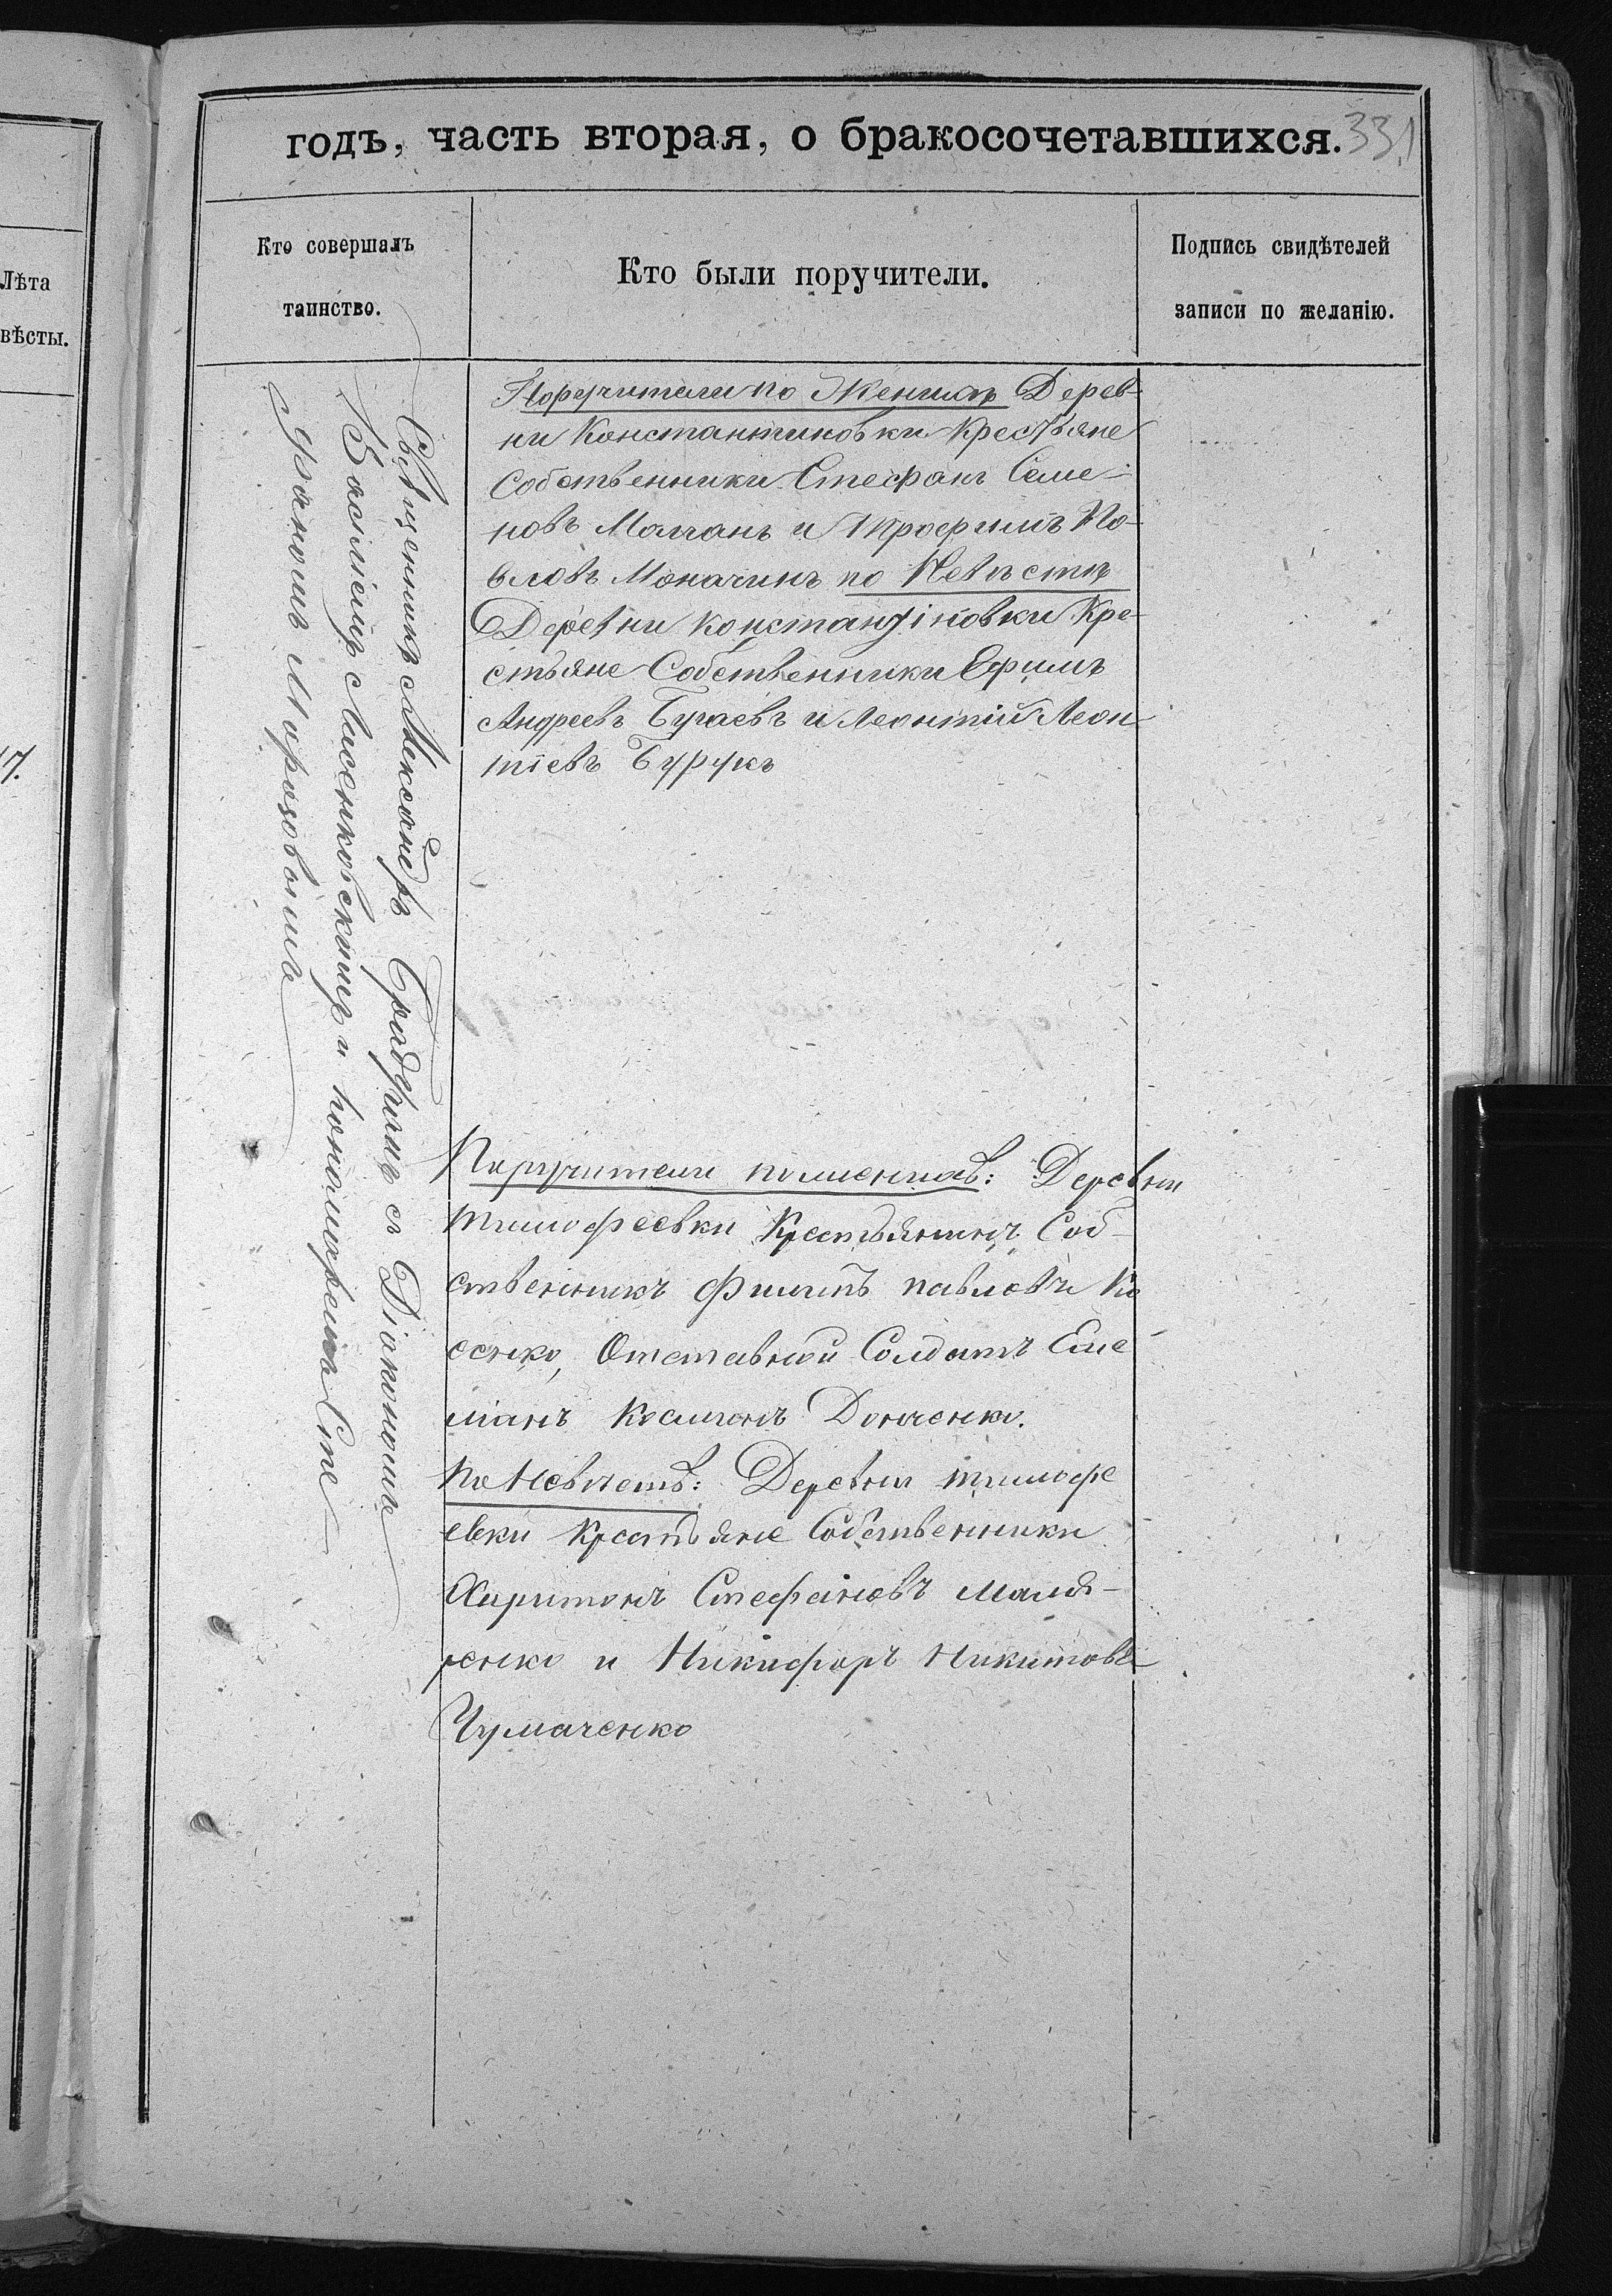 Лѣта
вѣсты.
17.
годъ, часть вторая, о бракосочетавшихся. 331
Кто совершалъ
таинство.
Кто были поручители.
Подпись свидѣтелей
записи по желанію.
Священникъ Александръ съ Діакономъ
Василіемъ Лисенковскимъ и пономаремъ Сте
Морозовымъ
Поручители по Женихѣ Дерев-
ни Константиновки Крестьяне
Собственники Стефанъ Семе-
новъ Молчанъ и Трофимъ Па-
вловъ по Невѣстѣ
Деревни Константіновки Кре-
стьяне Собственники Ефимъ
Андреевъ Бугаевъ и Леонтій Леон
тіевъ Бурукъ
Поручители по женихѣ: Деревни
тимофеевки Крестьянинъ Соб-
ственникъ Филипъ павловъ Ко
сенко, Отставной Солдатъ Еме
ліанъ Донченко.
По Невѣстѣ: Деревни тимофе
евки Крестьяне Собственники
Харитонъ Стефановъ Маля-
ренко и Никифоръ Никитовъ
Чумаченко